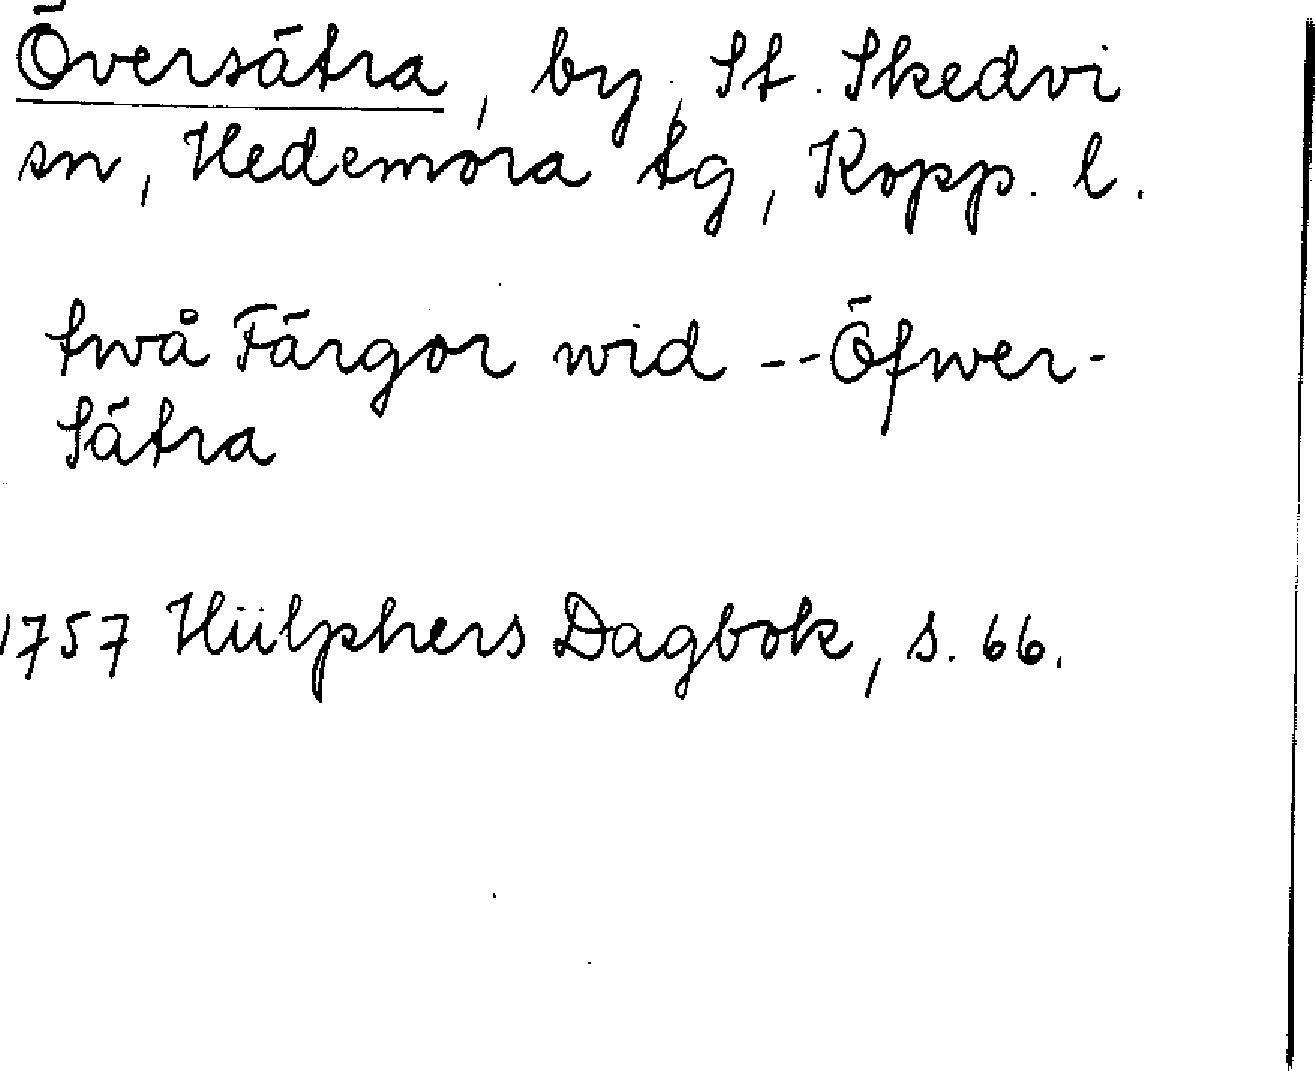 Översätra, by, St. Skedvi
sn, Hedemora tg, Kopp. l.
twå Färgor wid -- Öfwer-
Sätra
1757 Hülphers Dagbok, s. 66.